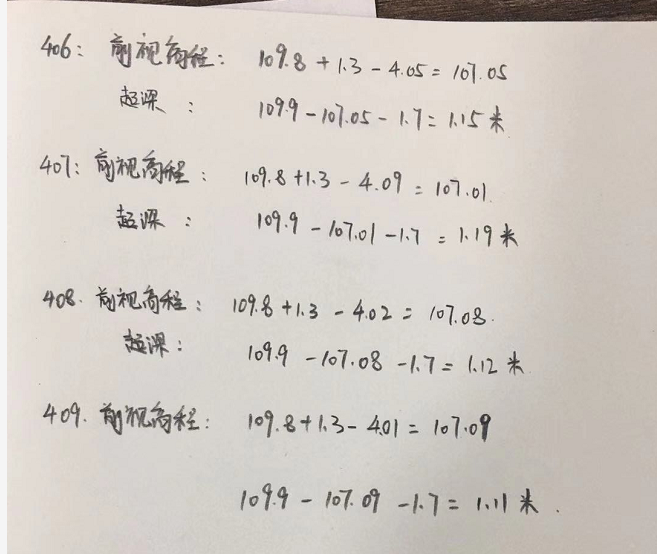 406: 前视高程: 109.8 + 1.3 - 4.05 = 107.05
超深: 109.9 - 107.05 - 1.7 = 1.15 米
407: 前视高程: 109.8 + 1.3 - 4.09 = 107.01.
超深: 109.9 - 107.01 - 1.7 = 1.19 米
408. 前视高程: 109.8 + 1.3 - 4.02 = 107.08.
超深: 109.9 - 107.08 - 1.7 = 1.12 米.
409. 前视高程: 109.8 + 1.3 - 4.01 = 107.09
109.9 - 107.09 - 1.7 = 1.11 米.